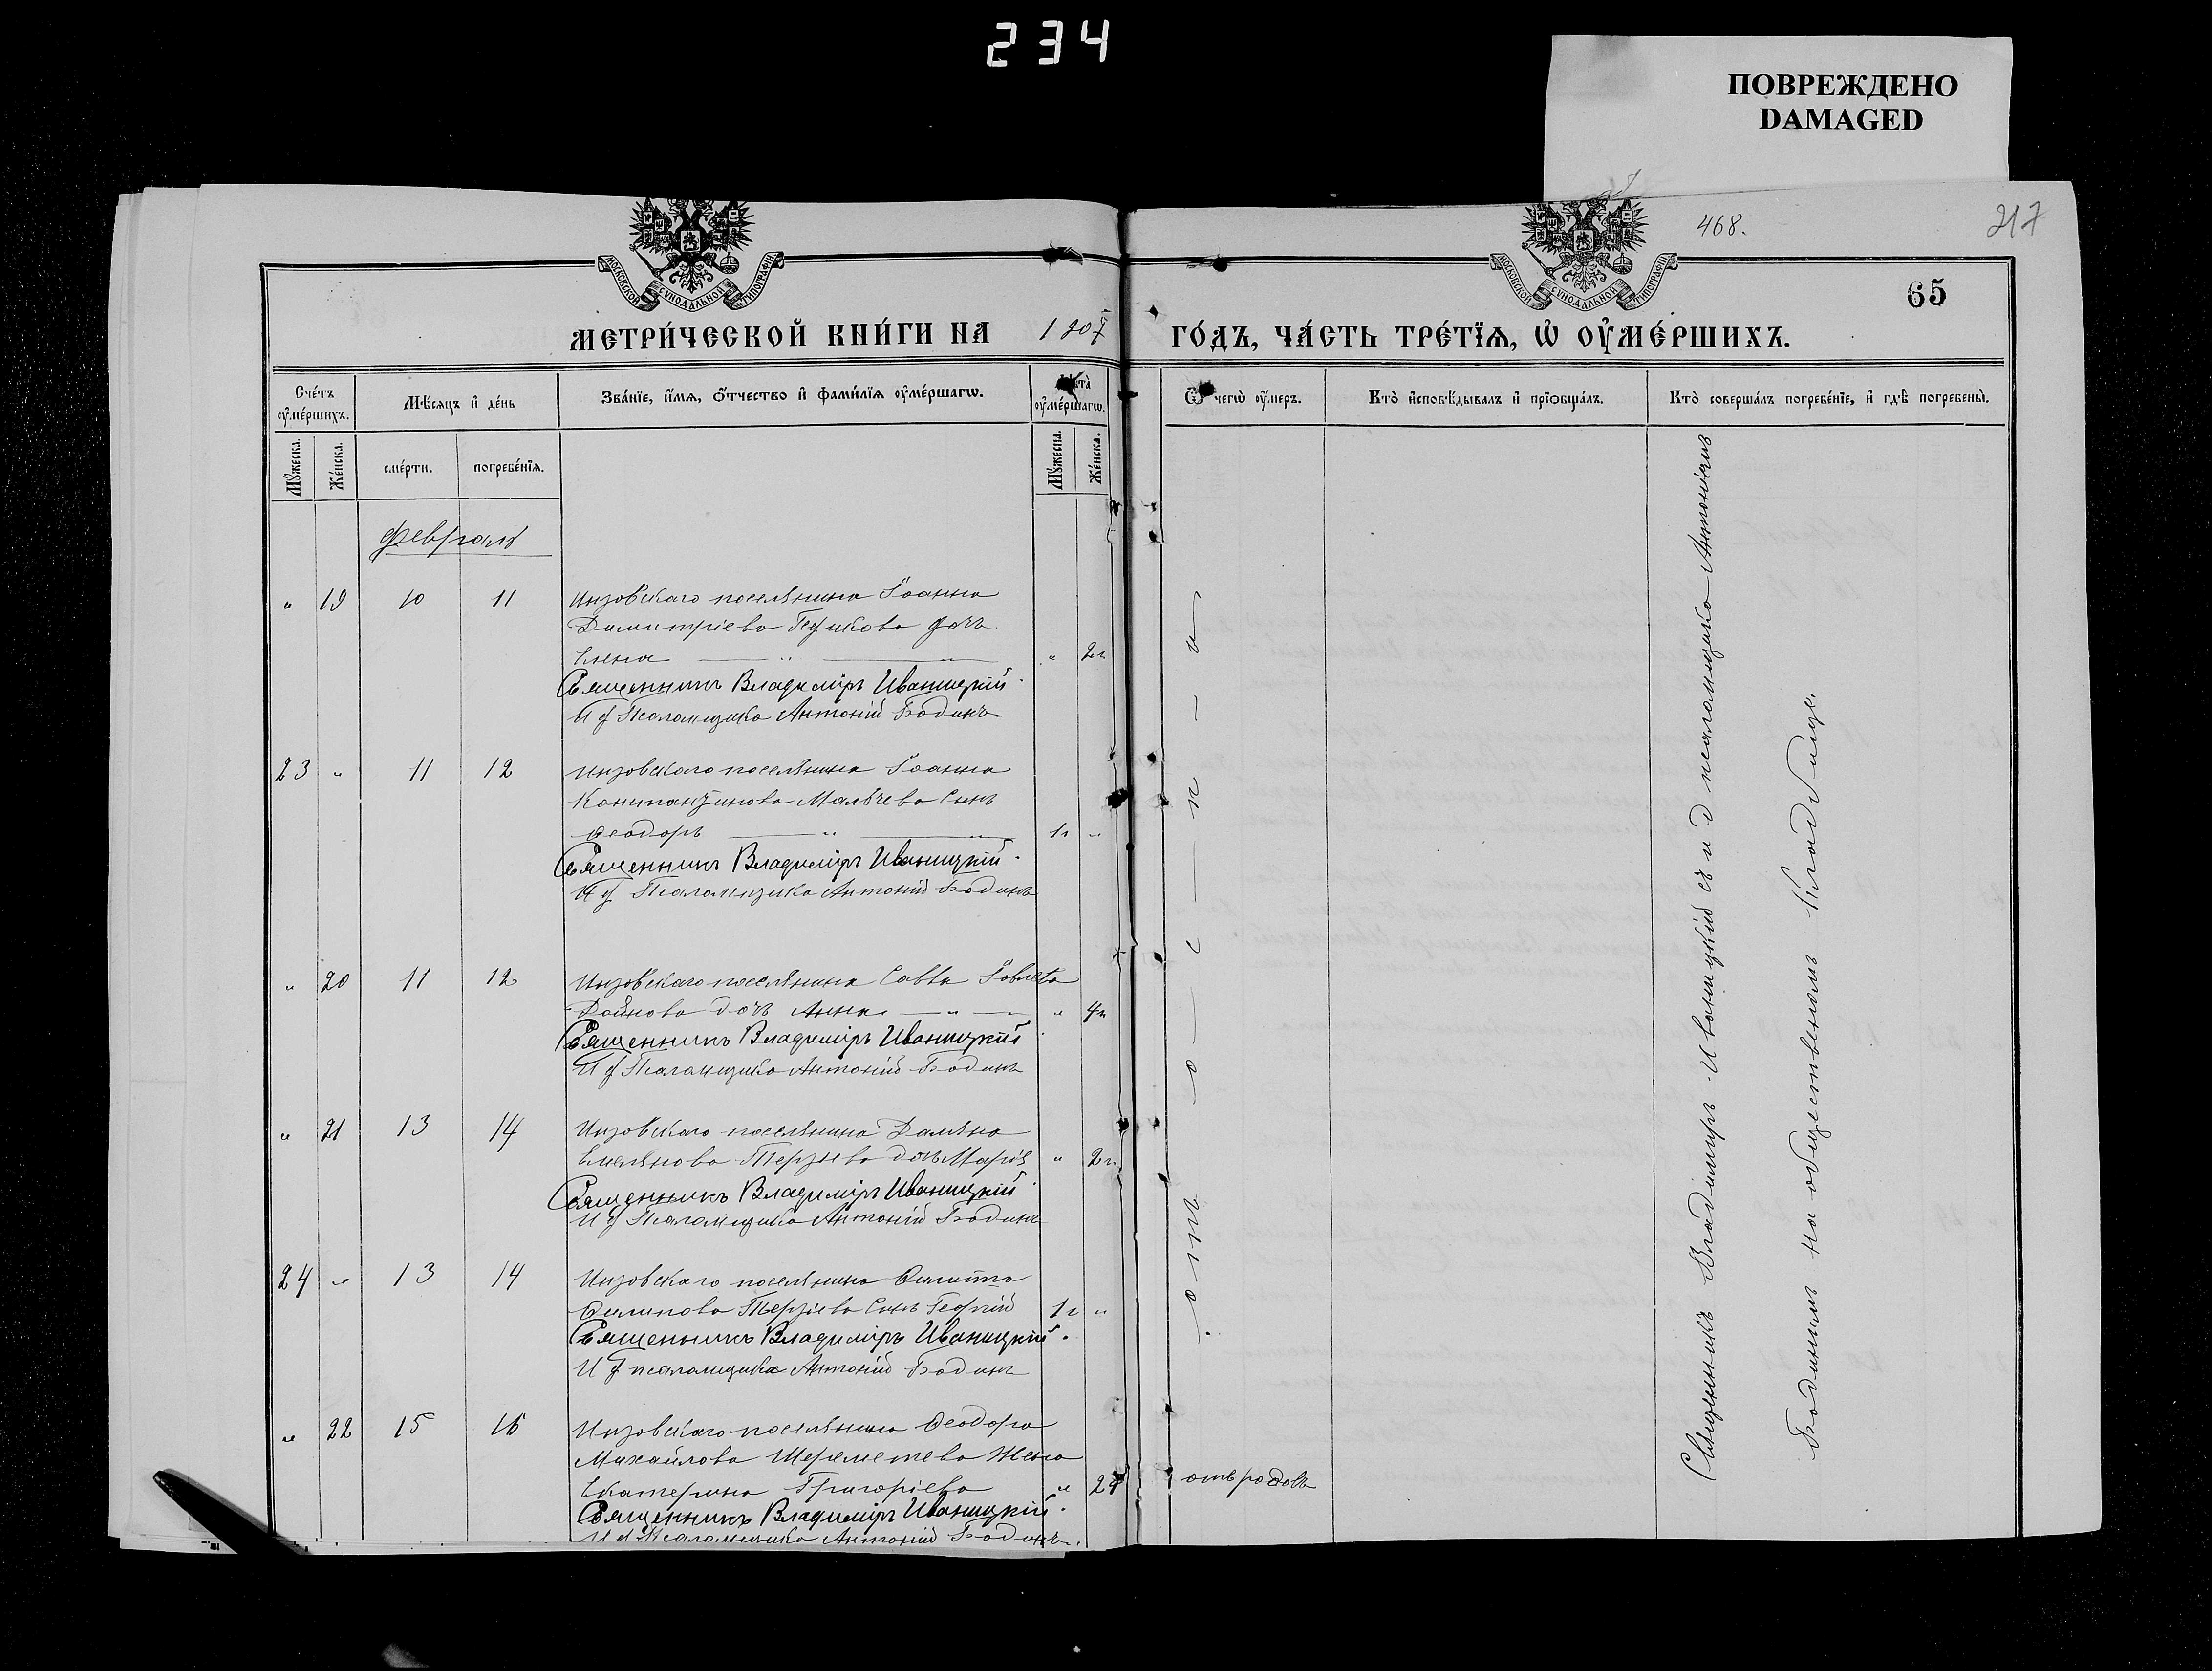 234
ПОВРЕЖДЕНО
DAMAGED
468.
217
65
МОСКОВСКОЙ СѴНОДАЛЬНОЙ ТИПОГРАФІИ
МОСКОВСКОЙ СѴНОДАЛЬНОЙ ТИПОГРАФІИ
МЕТРИ́ЧЕСКОЙ КНИ́ГИ НА 1907 ГО́ДЪ, ЧА́СТЬ ТРЕ́ТЇѦ, Ѡ҆ ОУ҆МЕ́РШИХЪ.
Сче́тъ оу҆ме́ршихъ.
Мѣ́сяцъ и҆ де́нь
Зва́нїе, и҆́мѧ, ѻ҆́тчество и҆ фами́лїѧ оу҆ме́ршагѡ.
Лѣ̀та̀ оу҆ме́ршагѡ.
Ѿ чегѡ̀ оу҆́меръ.
Кто̀ и҆сповѣ́дывалъ и҆ прїѻбща́лъ.
Кто̀ соверша́лъ погребе́нїе, и҆ гдѣ̀ погребены̀.
Мꙋ́жеска. Же́нска. сме́рти. погребе́нїѧ. Мꙋ́жеска. Же́нска.
Февраль
" 19 10 11 Инзовскаго поселянина Іоанна
Димитріева дочь
Елена — " — " 2г
Священникъ Владиміръ Иваницкій
И д Псаломщика Антоній Бодинъ
23 " 11 12 Инзовскаго поселянина Іоанна
Константинова Мальчева сынъ
Ѳеодоръ — " — 1г "
Священникъ Владиміръ Иваницкій.
И д Псаломщика Антоній Бодинъ
" 20 11 12 Инзовскаго поселянина Саввы
Дойнова дочь Анна — " — " 4г
Священникъ Владиміръ Иваницкій
И д Псаломщика Антоній Бодинъ
" 21 13 14 Инзовскаго поселянина Даміана
Емельянова Терзиева дочь Марія " 2г
Священникъ Владиміръ Иваницкій
И д Псаломщика Антоній Бодинъ
24 " 13 14 Инзовскаго поселянина Филиппа
Филипова Терзіева сынъ Георгій 1г "
Священникъ Владиміръ Иваницкій.
И д псаломщика Антоній Бодинъ
" 22 15 16 Инзовскаго поселянина Ѳеодора
Михайлова Шереметева жена
Екатерина Григоріева " 27
Священникъ Владиміръ Иваницкій.
И д Псаломщика Антоній Бодинъ.
отъ оспи
отъ родовъ
Священникъ Владиміръ Иваницкій съ и д псаломщика Антоніемъ
Бодинымъ на общественномъ кладбище.